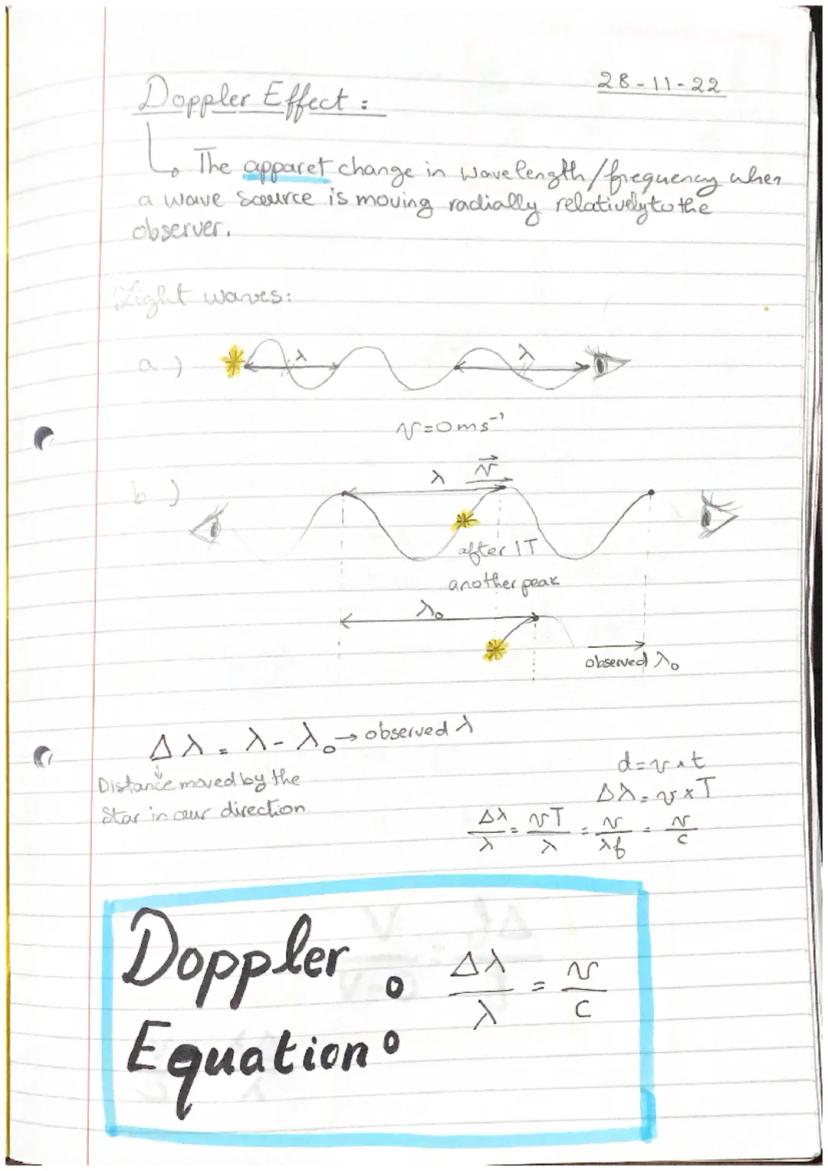 28-11-22
Doppler Effect:
↳ The apparet change in wavelength/frequency when
a wave source is moving radially relatively to the
observer.
Light waves:
a)
λ
λ
v=0ms⁻¹
b)
λ
v⃗
after 1T
another peak
λ₀
observed λ₀
Δλ = λ - λ₀ → observed λ
Distance moved by the
Star in our direction
d = v × t
Δλ = v × T
Δλ/λ = vT/λ = v/λf = v/c
Doppler
Equation: Δλ/λ = v/c